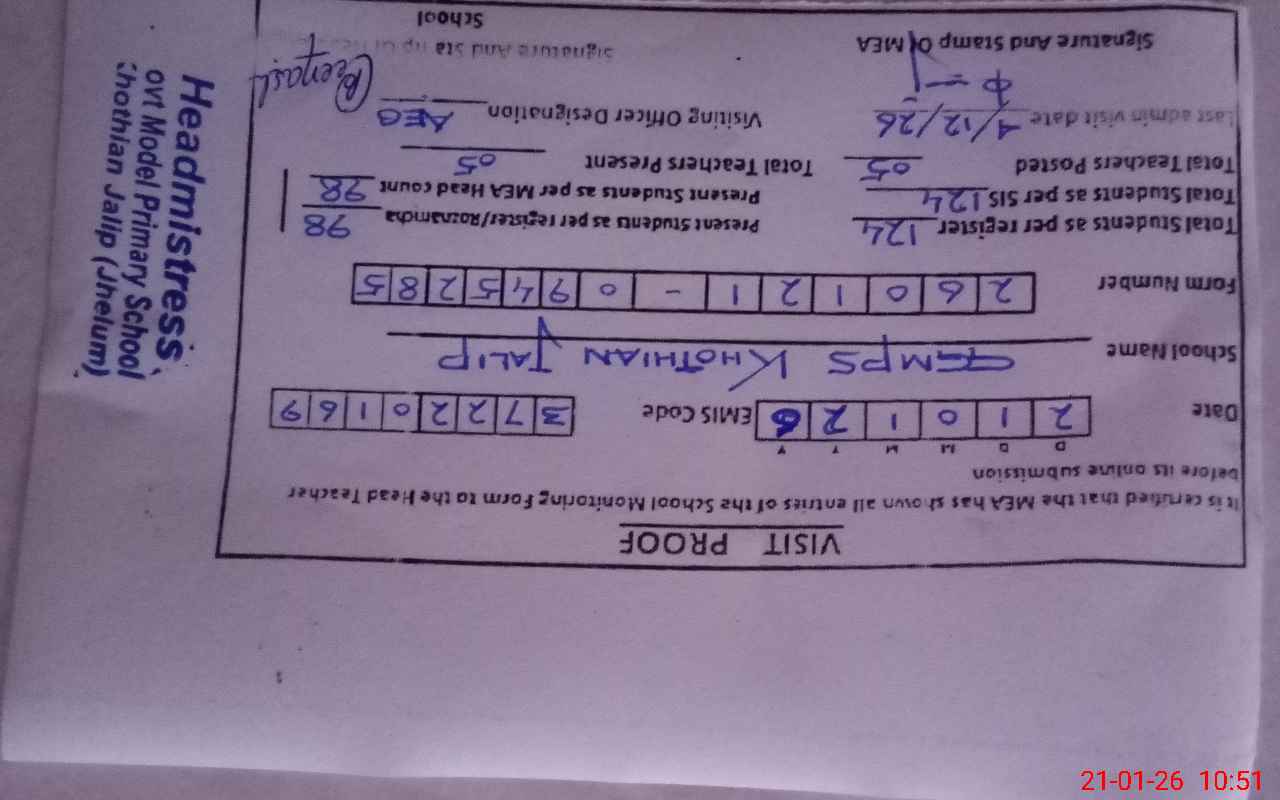 VISIT PROOF
It is certified that the MEA has shown all entries of the School Monitoring Form to the Head Teacher
before its online submission
D D M M Y Y
Date 2 1 0 1 2 6 EMIS Code 3 7 2 2 0 1 6 9
School Name GGMPS KHOTHIAN JALIP
Form Number 2 6 0 1 2 1 - 0 9 4 5 2 8 5
Total Students as per register 124 Present Students as per register/Roznamcha 98
Total Students as per SIS 124 Present Students as per MEA Head count 98
Total Teachers Posted 05 Total Teachers Present 05
Last admin visit date /12/26 Visiting Officer Designation AEO
Signature And Stamp Of MEA Signature And Stamp Of
School
Headmistress
ovt Model Primary School
hothian Jalip (Jhelum)
21-01-26 10:51